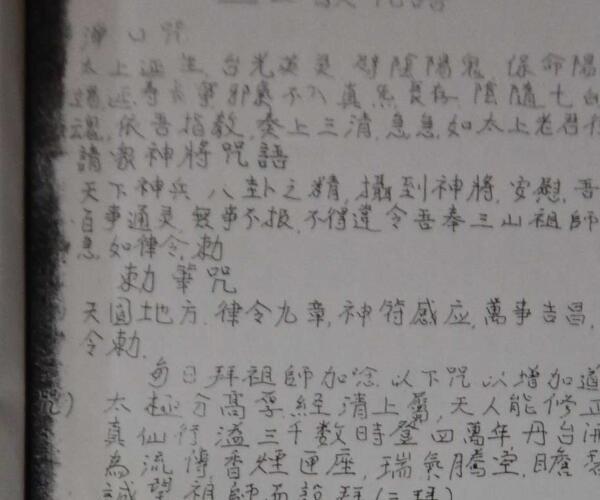 淨口咒
太上延生,台光英灵,辟陰陽鬼,保命陽
邪氣不入真炁長存,陰隨七白
魂,依吾指教,奏上三清,急急,如太上老君律
請衆神將咒語
天下神兵,八卦之精,攝到神將,安慰,吾
百事通灵,無事不报,不得違令吾奉三山祖師
急如律令,勅
勅筆咒
天圓地方,律令九章,神符感应,萬事吉昌,
令勅.
每日拜祖師加唸,以下咒以增加道
咒)太極分高孚,經清上屬,天人能修正
真仙行溢三千数時登四萬年,丹台
為流傳香煙匝座,瑞氣騰空,瞻
誠望祖師而設拜(三拜)